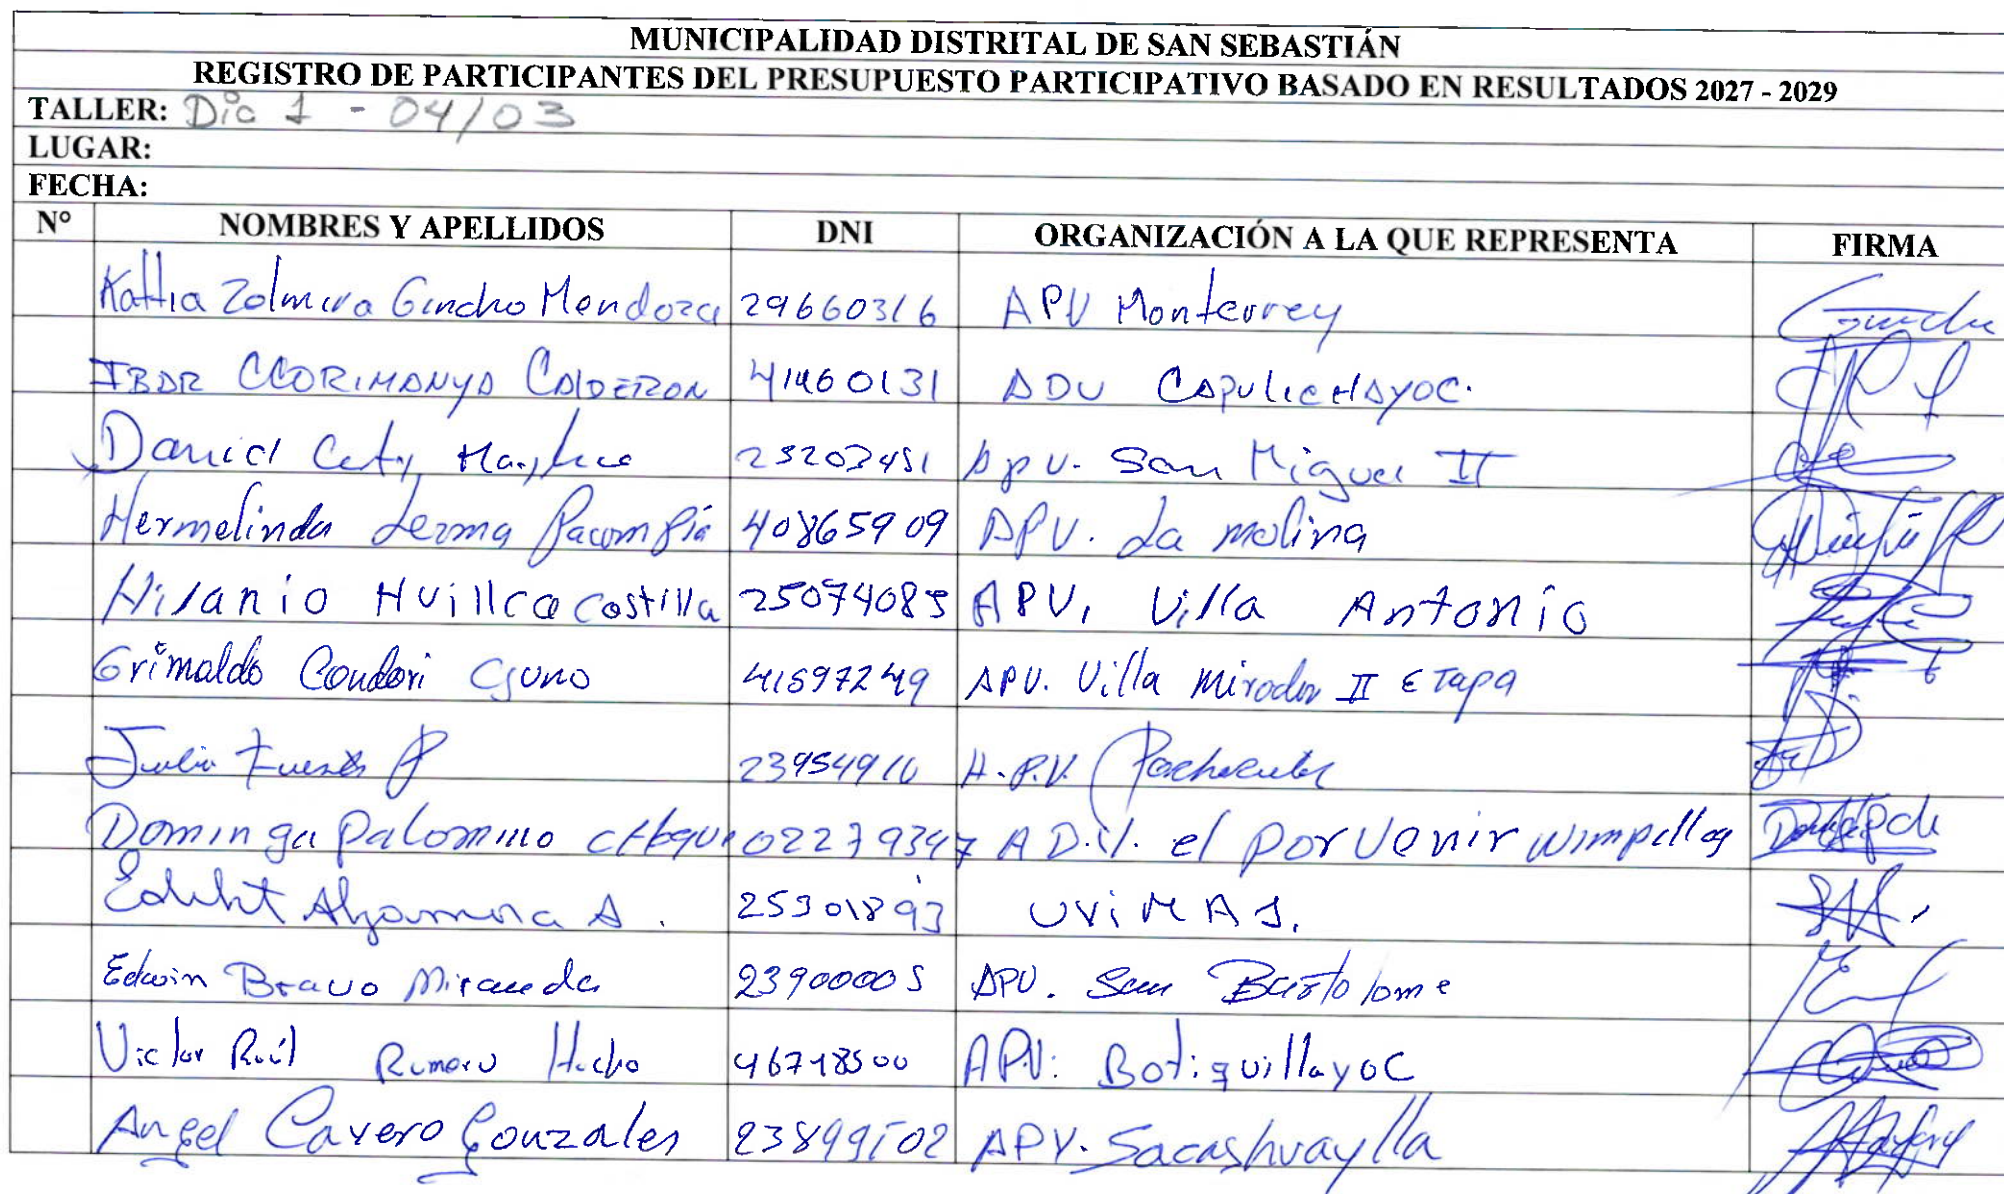 MUNICIPALIDAD DISTRITAL DE SAN SEBASTIÁN
REGISTRO DE PARTICIPANTES DEL PRESUPUESTO PARTICIPATIVO BASADO EN RESULTADOS 2027 - 2029
TALLER: Dia 1 - 04/03
LUGAR:
FECHA:
N° NOMBRES Y APELLIDOS DNI ORGANIZACIÓN A LA QUE REPRESENTA FIRMA
Kattia Zolmira Guncho Mendoza 29660316 APV Monterrey
CCORIMANYA CALDERON 41460131 ADU CAPULICHAYOC.
Daniel 23203451 Apv. San Miguel II
Hermelinda Lezma Pacompia 40865909 APV. La molina
Hilanio Huillca Costilla 25074085 APV, Villa Antonio
Grimaldo Condori Cjuno 41597249 APV. Villa Mirador II ETapa
Julio Fuentes P 239549 Pachacutec
Dominga Palomino 02279347 el Porvenir wimpillay
Alzamora A. 25301893 UVIMA
Edwin Bravo Miranda 23900005 APV. San Bartolome
Victor Raúl Romero 46748500 APV: Botiquillayoc
Angel Cavero Gonzales 23899502 APV. Sacashuaylla